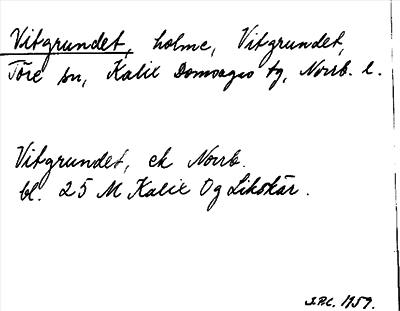 Vitgrundet, holme, Vitgrundet,
Töre sn, Kalix Domsagas tg, Norrb. l.
Vitgrundet, ek Norrb.
bl. 25 M Kalix Og Likskär.
1959.